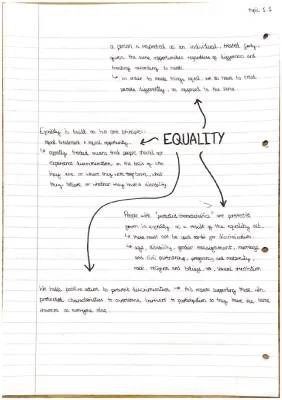 topic 1.1
a person is respected as an individual, treated fairly,
given the same opportunities regardless of differences and
treating according to needs.
↳ in order to make things equal, we do have to treat
people differently, as opposed to the same.
Equality is built on two core principles:
equal treatment + equal opportunity.
EQUALITY
↳ equality treated means that people should not
experience discrimination on the basis of who
they are or where they were born, what
they believe or whether they have a disability.
People with "protected characteristics" are
given in equality as a result of the equality act.
↳ these must not be used as for discrimination.
↳ age, disability, gender reassignment, marriage
and civil partnership, pregnancy and maternity,
race, religion and belief, sex, sexual orientation
We take positive action to prevent discrimination → this means supporting those with
protected characteristics to overcome barriers to participation so they have the same
chances as everyone else.